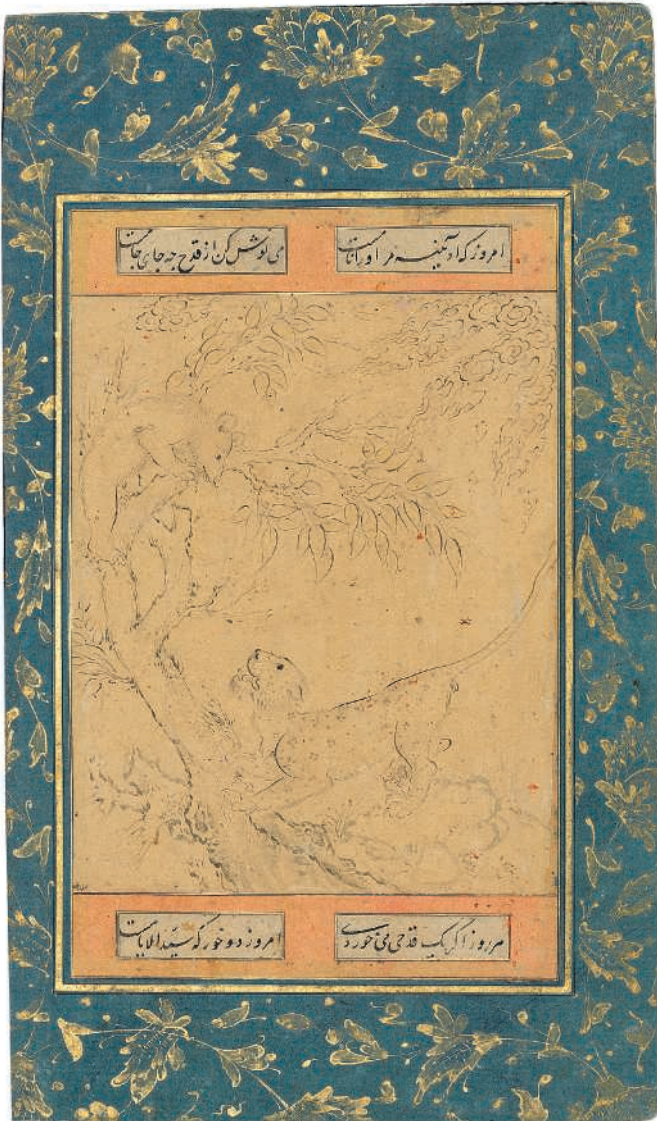 امروز که ادینه مر او را نامست
می نوش کن از قدح چه جای جامست
هر روز اگر یک قدحی می خوردی
امروز دو خور که سیّد الایامست